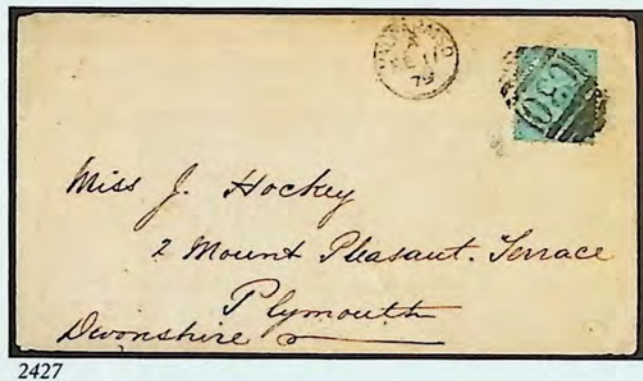 VALPARAISO
79
C30
Miss J. Hockey
2 Mount Pleasant. Terrace
Plymouth
Devonshire
2427